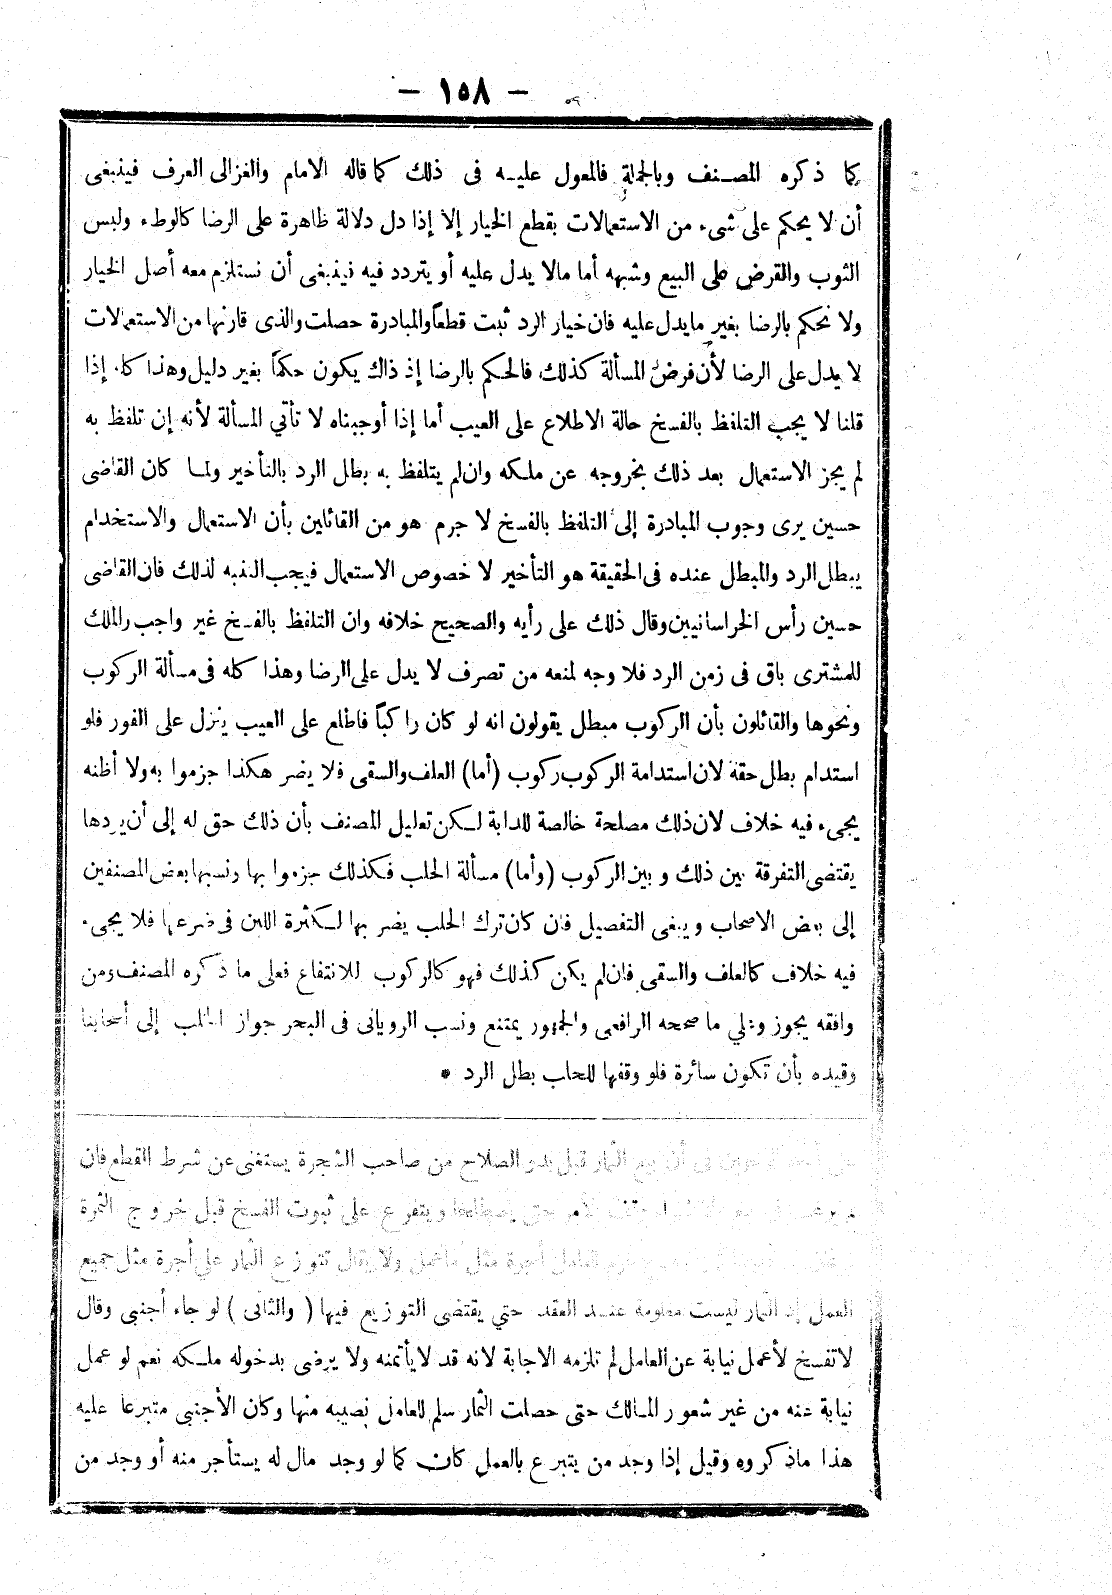 — ١٥٨ —
كما ذكره المصنف وبالجملة فالمعول عليه فى ذلك كما قاله الامام والغزالى العرف فينبغى
أن لا يحكم على شىء من الاستعمالات بقطع الخيار إلا إذا دل دلالة ظاهرة على الرضا كالوطء ولبس
الثوب والقرض على البيع وشبهه أما مالا يدل عليه أو يتردد فيه فينبغى أن نستلزم معه أصل الخيار
ولا نحكم بالرضا بغير مايدل عليه فان خيار الرد ثبت قطعاً والمبادرة حصلت والذى قارنها من الاستعمالات
لا يدل على الرضا لأن فرض المسألة كذلك فالحكم بالرضا إذ ذاك يكون حكماً بغير دليل وهذا كله إذا
قلنا لا يجب التلفظ بالفسخ حالة الاطلاع على العيب أما إذا أوجبناه لا تأتي المسألة لأنه إن تلفظ به
لم يجز الاستعمال بعد ذلك بخروجه عن ملكه وان لم يتلفظ به بطل الرد بالتأخير ولما كان القاضى
حسين يرى وجوب المبادرة إلى التلفظ بالفسخ لا جرم هو من القائلين بأن الاستعمال والاستخدام
يبطل الرد والمبطل عنده فى الحقيقة هو التأخير لا خصوص الاستعمال فيجب التنبه لذلك فان القاضى
حسين رأس الخراسانيين وقال ذلك على رأيه والصحيح خلافه وان التلفظ بالفسخ غير واجب والملك
للمشترى باق فى زمن الرد فلا وجه لمنعه من تصرف لا يدل على الرضا وهذا كله فى مسألة الركوب
ونحوها والقائلون بأن الركوب مبطل يقولون انه لو كان راكباً فاطلع على العيب ينزل على الفور فلو
استدام بطل حقه لان استدامة الركوب ركوب (أما) العلف والسقى فلا يضر هكذا جزموا به ولا أظنه
يجىء فيه خلاف لان ذلك مصلحة خالصة للدابة لكن تعليل المصنف بأن ذلك حق له إلى أن يردها
يقتضى التفرقة بين ذلك وبين الركوب (وأما) مسألة الحلب فكذلك جزموا بها ونسبها بعض المصنفين
إلى بعض الاصحاب وينبغى التفصيل فان كان ترك الحلب يضر بها لكثرة اللبن فى ضرعها فلا يجىء
فيه خلاف كالعلف والسقى فان لم يكن كذلك فهو كالركوب للانتفاع فعلى ما ذكره المصنف ومن
وافقه يجوز وعلي ما صححه الرافعى والجمهور يمتنع ونسب الرويانى فى البحر جواز الحلب إلى أصحابنا
وقيده بأن تكون سائرة فلو وقفها للحلب بطل الرد *
فى أن بيع الثمار قبل بدو الصلاح من صاحب الشجرة يستغنى عن شرط القطع فان
الامر حتى يصطلحا ويتفرع على ثبوت الفسخ قبل خروج الثمرة
للعامل أجرة مثل ما عمل ولا يقال تتوزع الثمار على أجرة مثل جميع
العمل إذ الثمار ليست معلومة عند العقد حتي يقتضى التوزيع فيها (والثانى) لو جاء أجنبى وقال
لا تفسخ لأعمل نيابة عن العامل لم تلزمه الاجابة لانه قد لا يأتمنه ولا يرضى بدخوله ملكه نعم لو عمل
نيابة عنه من غير شعور المالك حتى حصلت الثمار سلم للعامل نصيبه منها وكان الأجنبى متبرعا عليه
هذا ماذكروه وقيل إذا وجد من يتبرع بالعمل كان كما لو وجد مال له يستأجر منه أو وجد من